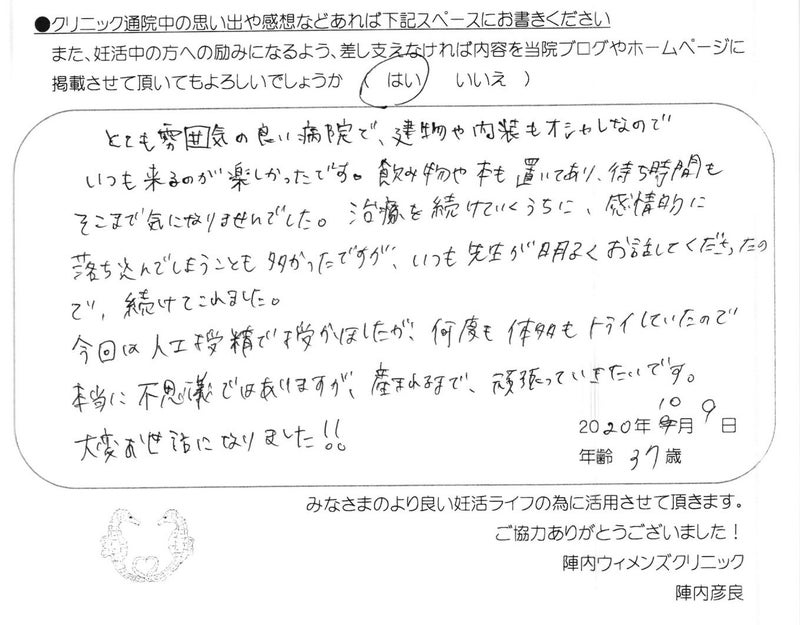 ●クリニック通院中の思い出や感想などあれば下記スペースにお書きください
また、妊活中の方への励みになるよう、差し支えなければ内容を当院ブログやホームページに
掲載させて頂いてもよろしいでしょうか （ はい　いいえ ）
とても雰囲気の良い病院で、建物や内装もオシャレなので
いつも来るのが楽しかったです。飲み物や本も置いてあり、待ち時間も
そこまで気になりませんでした。治療を続けていくうちに、感情的に
落ち込んでしまうことも多かったですが、いつも先生が明るくお話してくださったの
で、続けてこれました。
今回は人工授精で授かりましたが、何度も体外もトライしていたので
本当に不思議ではありますが、産まれるまで、頑張っていきたいです。
大変お世話になりました!!
2020年10月9日
年齢 37歳
みなさまのより良い妊活ライフの為に活用させて頂きます。
ご協力ありがとうございました！
陣内ウィメンズクリニック
陣内彦良